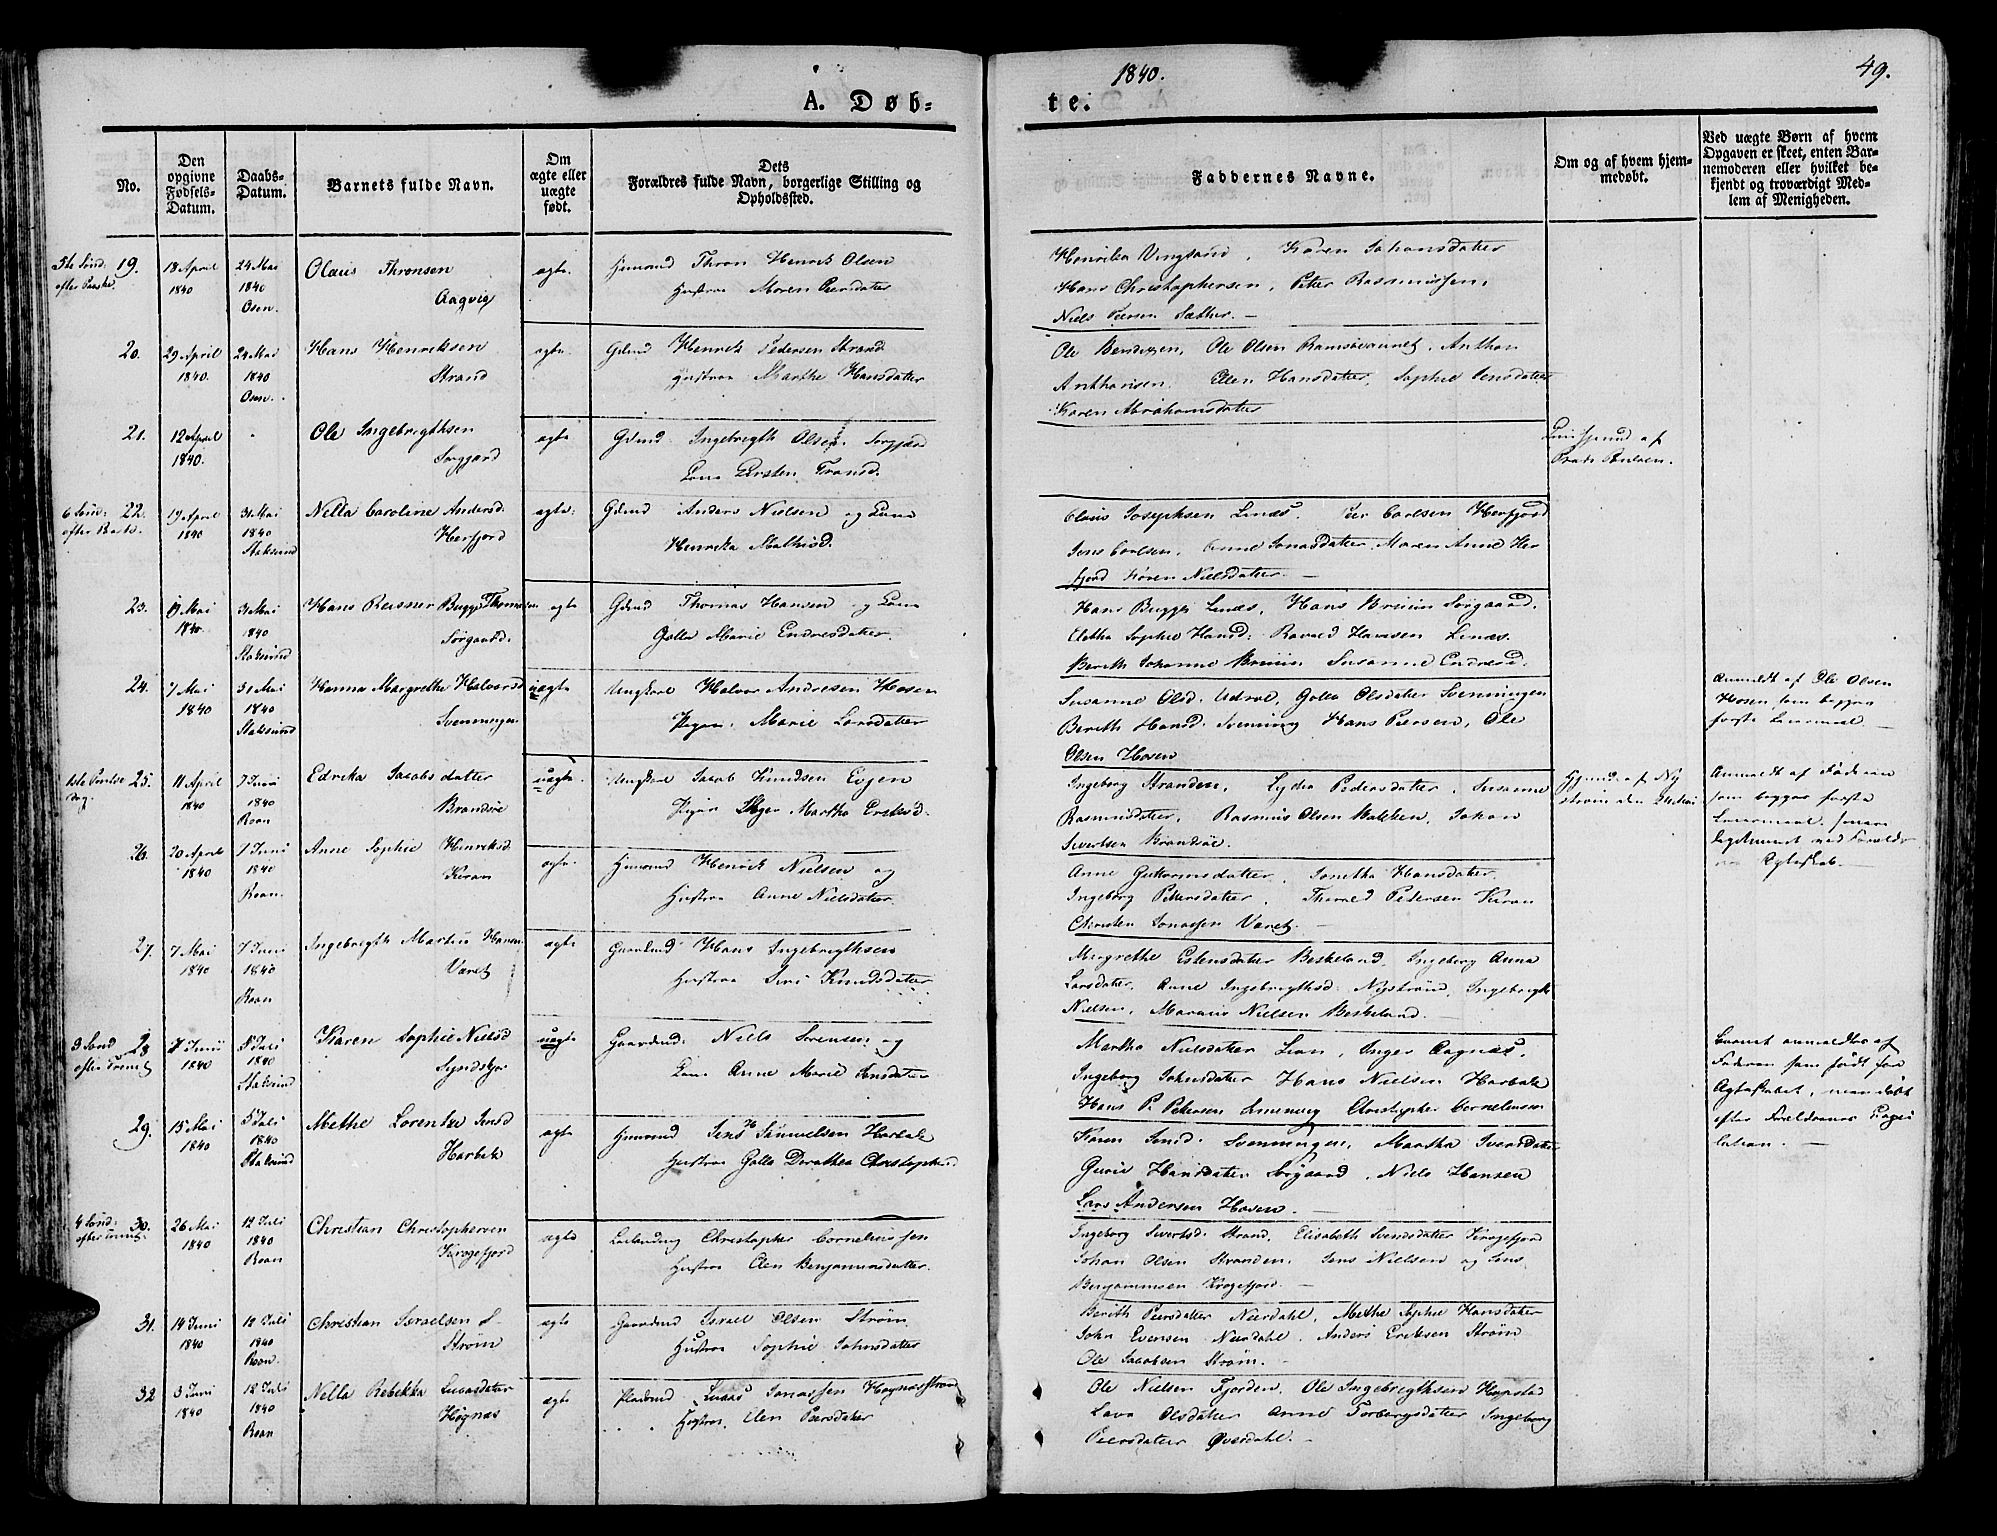 1840.
49.
A. Døb=
te.
No.
Den opgivne Fødsels-Datum.
Daabs-Datum.
Barnets fulde Navn.
Om ægte eller uægte født.
Dets Forældres fulde Navn, borgerlige Stilling og Opholdssted.
Faddernes Navne.
Om og af hvem hjemmedøbt.
Ved uægte Børn af hvem Opgaven er skeet, enten Barnemoderen eller hvilket bekjendt og troværdigt Medlem af Menigheden.
5te Sønd: efter Paaske.
19.
18 April 1840
24 Mai 1840 Osen.
Olaus Thronsen Aagvig
ægte.
Huusmd Thron Henrik Olsen
Hustrue Maren Peersdatter
Henrika Vingsand, Karen Johansdatter
Hans Christophersen, Peter Rasmussen,
Niels Peersen Sætter. —
20.
29 April 1840.
24 Mai 1840 Osen.
Hans Henriksen Strand
ægte.
Gdmd Henrik Pedersen Strand
Hustrue Marthe Hansdatter
Ole Bendixen, Ole Olsen Ramsøevaunet, Anthon
Anthonsen. Elen Hansdatter, Sophie Jensdatter
Karen Abrahamsdatter
21.
12 April 1840.
Ole Ingebrigthsen Sørgjerd
ægte
Gdmd Ingebrigth Olsen Sørgjerd
Kone Kirsten Transd.
6 Sønd: efter Paaske.
22.
19 April 1840
31 Mai 1840 Stoksund
Nella Caroline Andersd. Herfjord
ægte.
Gdmd Anders Nielsen og Kone
Henrika Mathisd.
Claus Josephsen Linæs. Peer Carlsen Herfjord
Jens Carlsen, Anne Jonasdatter, Maren Anne Her
fjord Karen Nielsdatter. —
23.
Mai 1840.
31 Mai 1840 Stoksund
Hans Reisner Bugge Thomasen Sørgaard.
ægte
Gdmd Thomas Hansen og Kone
Golla Marie Endresdatter
Hans Bugge Linæs, Hans Bruun Sørgaard.
Sophie Hansd: Hansen Linæs.
Berith Johanne Bruun Susanne Endresd.
24.
7 Mai 1840
31 Mai 1840 Stoksund
Hanna Margrethe Halvorsd Svenningen
uægte
Ungkarl Halvor Andresen Hosen
Pigen: Marie Larsdatter
Susanne Olsd. Golla Olsdatter Svenningen
Bereth Hansd. Svenning Hans Peersen, Ole
Olsen Hosen
Anmeldt af Ole Olsen
Hosen som begges
første Leiermaal —
1ste Pintse dag.
25.
11 April 1840
7 Juni 1840 Roan
Edvika Jacobsdatter Brandsøe
uægte.
Ungkarl Jacob Knudsen Evjen
Pigen Martha Eriksd.
Ingeborg Stranden, Lydia Pedersdatter, Susanne
Rasmusdatter, Rasmus Olsen Bakken, Johan
Sivertsen Brandsøe.
Anmeldt af Faderen
som begges første
Leiermaal.
26.
20 April 1840
7 Juni 1840 Roan.
Anne Sophie Henriksd. Kiran
ægte.
Huusmd Henrik Nielsen og
Hustrue Anne Nielsdatter
Anne Guttormsdatter, Jonetha Hansdatter.
Ingeborg Pettersdatter, Petersen Kiran
Christen Jonassen Varet. —
27.
7 Mai 1840
7 Juni 1840 Roan
Ingebrigth Martin Hansen Varet
ægte
Gaardmd: Hans Ingebrigthsen
Hustrue Siri Knudsdatter
Margrethe Estensdatter Beskeland, Ingeborg Anna
Larsdatter, Anne Ingebrigthsd: Nystrøm, Ingebrigth
Nielsen, Nielsen Beskeland. —
3 Sønd efter Trinit
28
7 Juni 1840
5 Juli 1840 Stoksund
Karen Sophie Nielsd
uægte
Gaardmd: Niels Sørensen og
Kone Anne Marie Jensdatter
Martha Nielsdatter Lian, Inger Aagnæs,
Ingeborg Johnsdatter Hans Nielsen Harbak
Hans P. Petersen Christopher Cornelinsen
Barnet anmeldtes af
Faderen som født før
Ægteskabet, men døbt
efter Forældrenes
29.
15 Mai 1840
5 Juli 1840 Stoksund
Methe Lorentze Jensd Harbak
ægte
Huusmd Jens Harbak
Hustrue Golla Dorothea Christophersd.
Karen Jensd. Svenningen, Martha Iversdatter
Gurie Hansdatter Sørgaard, Niels Hansen
Lars Andersen Hosen. —
4 Sønd: efter Trinit.
30.
26 Mai 1840
12 Juli 1840 Roan
Christian Christophersen Krogefjord
ægte
Christopher Corneliussen
Hustrue Elen Benjaminsdatter.
Ingeborg Sivertsd. Strand, Elisabeth Svendsdatter Krogefjord
Johan Olsen Stranden, Jens Nielsen og Jens
Benjaminsen Krogefjord. —
31.
14 Juni 1840
12 Juli 1840 Roan.
Christian Israelsen S. Strøm
ægte
Gaardmd Israel Olsen Strøm.
Hustrue Sophie Johnsdatter
Berith Peersdatter Neerdahl, Methe Sophie Hansdatter
John Evensen Neerdahl. Anders Eriksen Strøm
Ole Jacobsen Strøm. —
32
3 Juni 1840
12 Juli 1840 Roan
Nella Rebekka Lucasdatter Høgnæs
ægte
Pladsmd Lucas Jonassen
Hustrue Elen Peersdatter
Ole Nielsen Fjorden, Ole Ingebrigthsen Hopstad
Lava Olsdatter Anne Torbergsdatter Ingeborg
Peersdatter Øverdahl. —